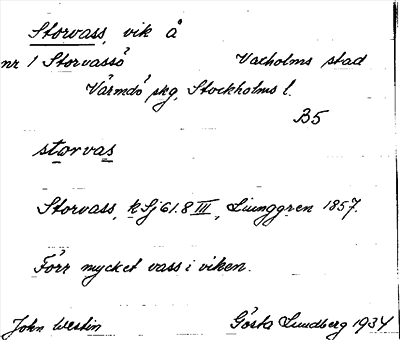 Storvass, vik å
nr 1 Storvassö Vaxholms stad
Värmdö skg, Stockholms l.
B5
storvas
Storvass, k Sj 61.8 III, Ljunggren 1857.
Förr mycket vass i viken.
John Westin Gösta Lundberg 1934